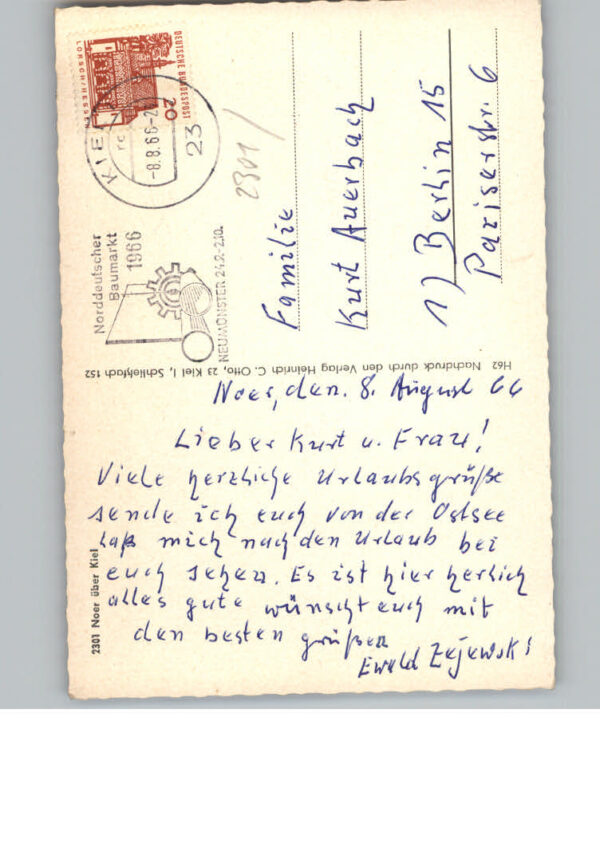 DEUTSCHE BUNDESPOST
LORSCH/HESSEN
20
KIEL
23
-8.8.66-2
Norddeutscher
Baumarkt
1966
NEUMÜNSTER 24.9.-2.10.
2301/
Familie
Kurt Auerbach
1) Berlin 15
Pariserstr. 6
H62 Nachdruck durch den Verlag Heinrich C. Otto, 23 Kiel 1, Schließfach 152
Noer, den. 8. August 66
Lieber Kurt u. Frau!
Viele herzliche Urlaubsgrüße
sende ich euch von der Ostsee
laß mich nach den Urlaub bei
euch sehen. Es ist hier herlich
alles gute wünscht euch mit
den besten grüßen
Ewald
2301 Noer über Kiel